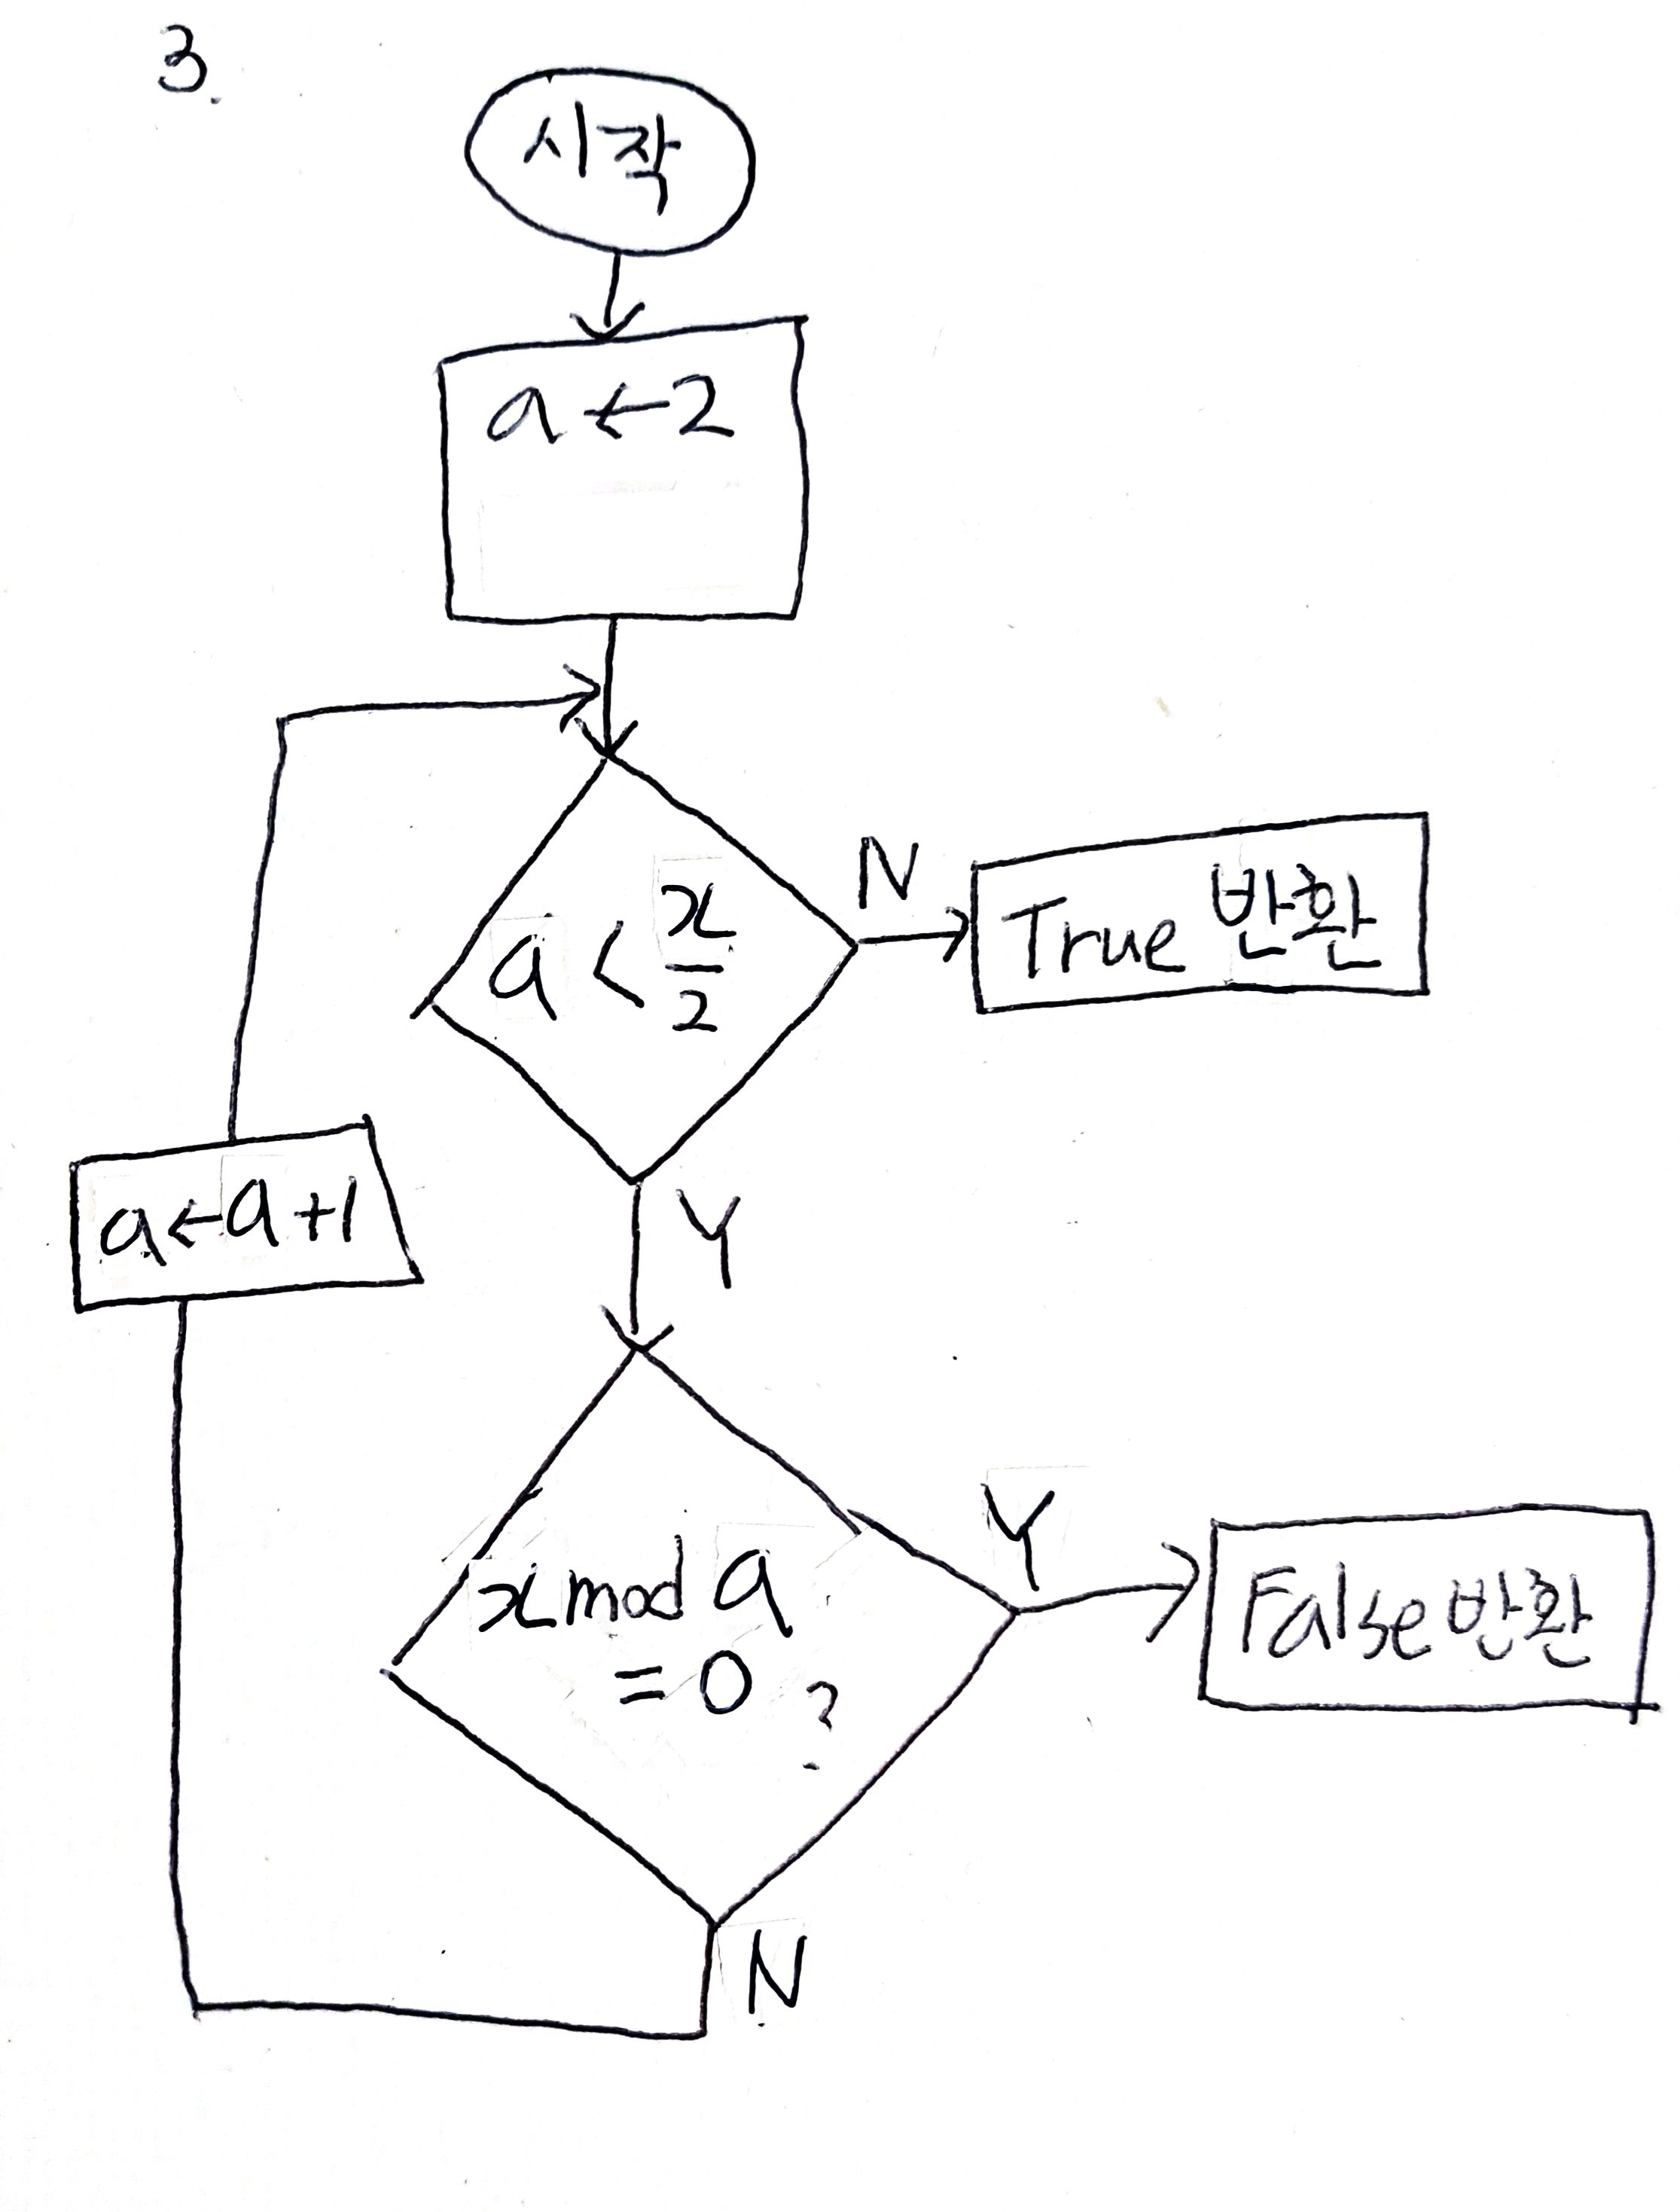 3.
시작
a ← 2
a < x/2
N
True 반환
a ← a + 1
Y
x mod a
= 0 ?
Y
False 반환
N